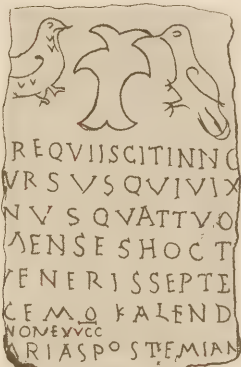 REQVIISCITINNC
VRSVSQVIVIX
NVSQVATTVO
MENSESHOCT
VENERISSEPTE
CEMO KALEND
NONEXVCC
ARIASPOSTEMIAN